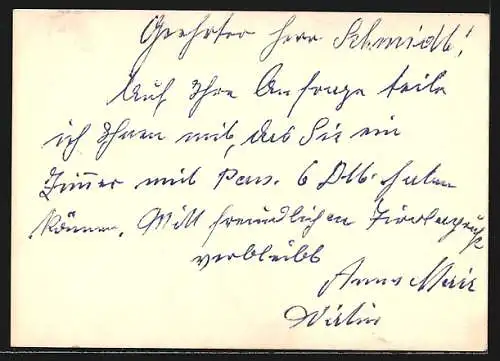 Geehrter Herr Schmidt!
Auf Ihre Anfrage teile
ich Ihnen mit, das Sie ein
Zimmer mit Pens. 6 DM. haben
können. Mitt freundlichen Tirolergruß
verbleibt
Anna Maier
Wirtin